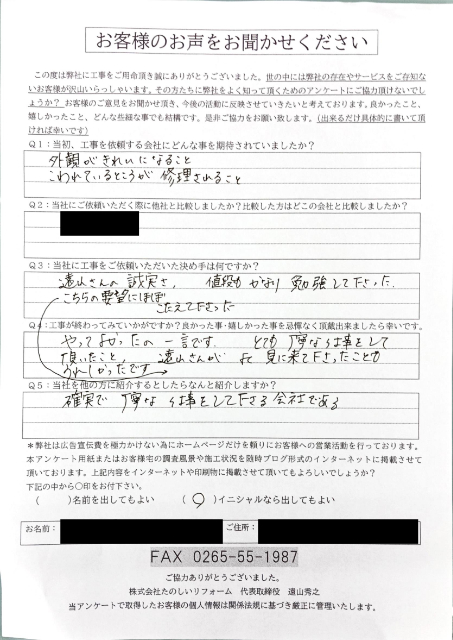 お客様のお声をお聞かせください
この度は弊社に工事をご用命頂き誠にありがとうございました。世の中には弊社の存在やサービスをご存知ない
お客様が沢山いらっしゃいます。その方たちに弊社をよく知って頂くためのアンケートにご協力頂けないでし
ょうか？ お客様のご意見をお聞かせ頂き、今後の活動に反映させていきたいと考えております。良かったこと、
嬉しかったこと、どんな些細な事でも結構です。是非ご協力をお願い致します。（出来るだけ具体的に書いて頂
ければ幸いです）
Q1：当初、工事を依頼する会社にどんな事を期待されていましたか？
外観がきれいになること
こわれているところが修理されること
Q2：当社にご依頼いただく際に他社と比較しましたか？比較した方はどこの会社と比較しましたか？
Q3：当社に工事をご依頼いただいた決め手は何ですか？
遠山さんの誠実さ、値段もかなり勉強して下さった。
こちらの要望にほぼ
こたえて下さった
Q4：工事が終わってみていかがですか？良かった事・嬉しかった事を忌憚なく頂戴出来ましたら幸いです。
やってよかったの一言です。とても丁寧な仕事をして
頂いたこと、遠山さんが 見に来て下さったことも
うれしかったです
Q5：当社を他の方に紹介するとしたらなんと紹介しますか？
確実で丁寧な仕事をして下さる会社である
＊弊社は広告宣伝費を極力かけない為にホームページだけを頼りにお客様への営業活動を行っております。
本アンケート用紙またはお客様宅の調査風景や施工状況を随時ブログ形式のインターネットに掲載させて
頂いております。上記内容をインターネットや印刷物に掲載させて頂いてもよろしいでしょうか？
下記の中から〇印をお付下さい。
（　　）名前を出してもよい　（ 〇 ）イニシャルなら出してもよい
お名前： ご住所：
FAX 0265-55-1987
ご協力ありがとうございました。
株式会社たのしいリフォーム 代表取締役 遠山秀之
当アンケートで取得したお客様の個人情報は関係法規に基づき厳正に管理いたします。